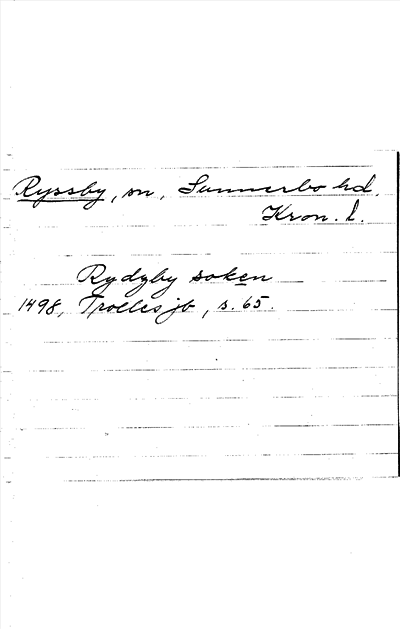 Ryssby, sn, Sunnerbo hd.
Kron. l.
Rydzby soken
1498, Trollesjb, s. 65.